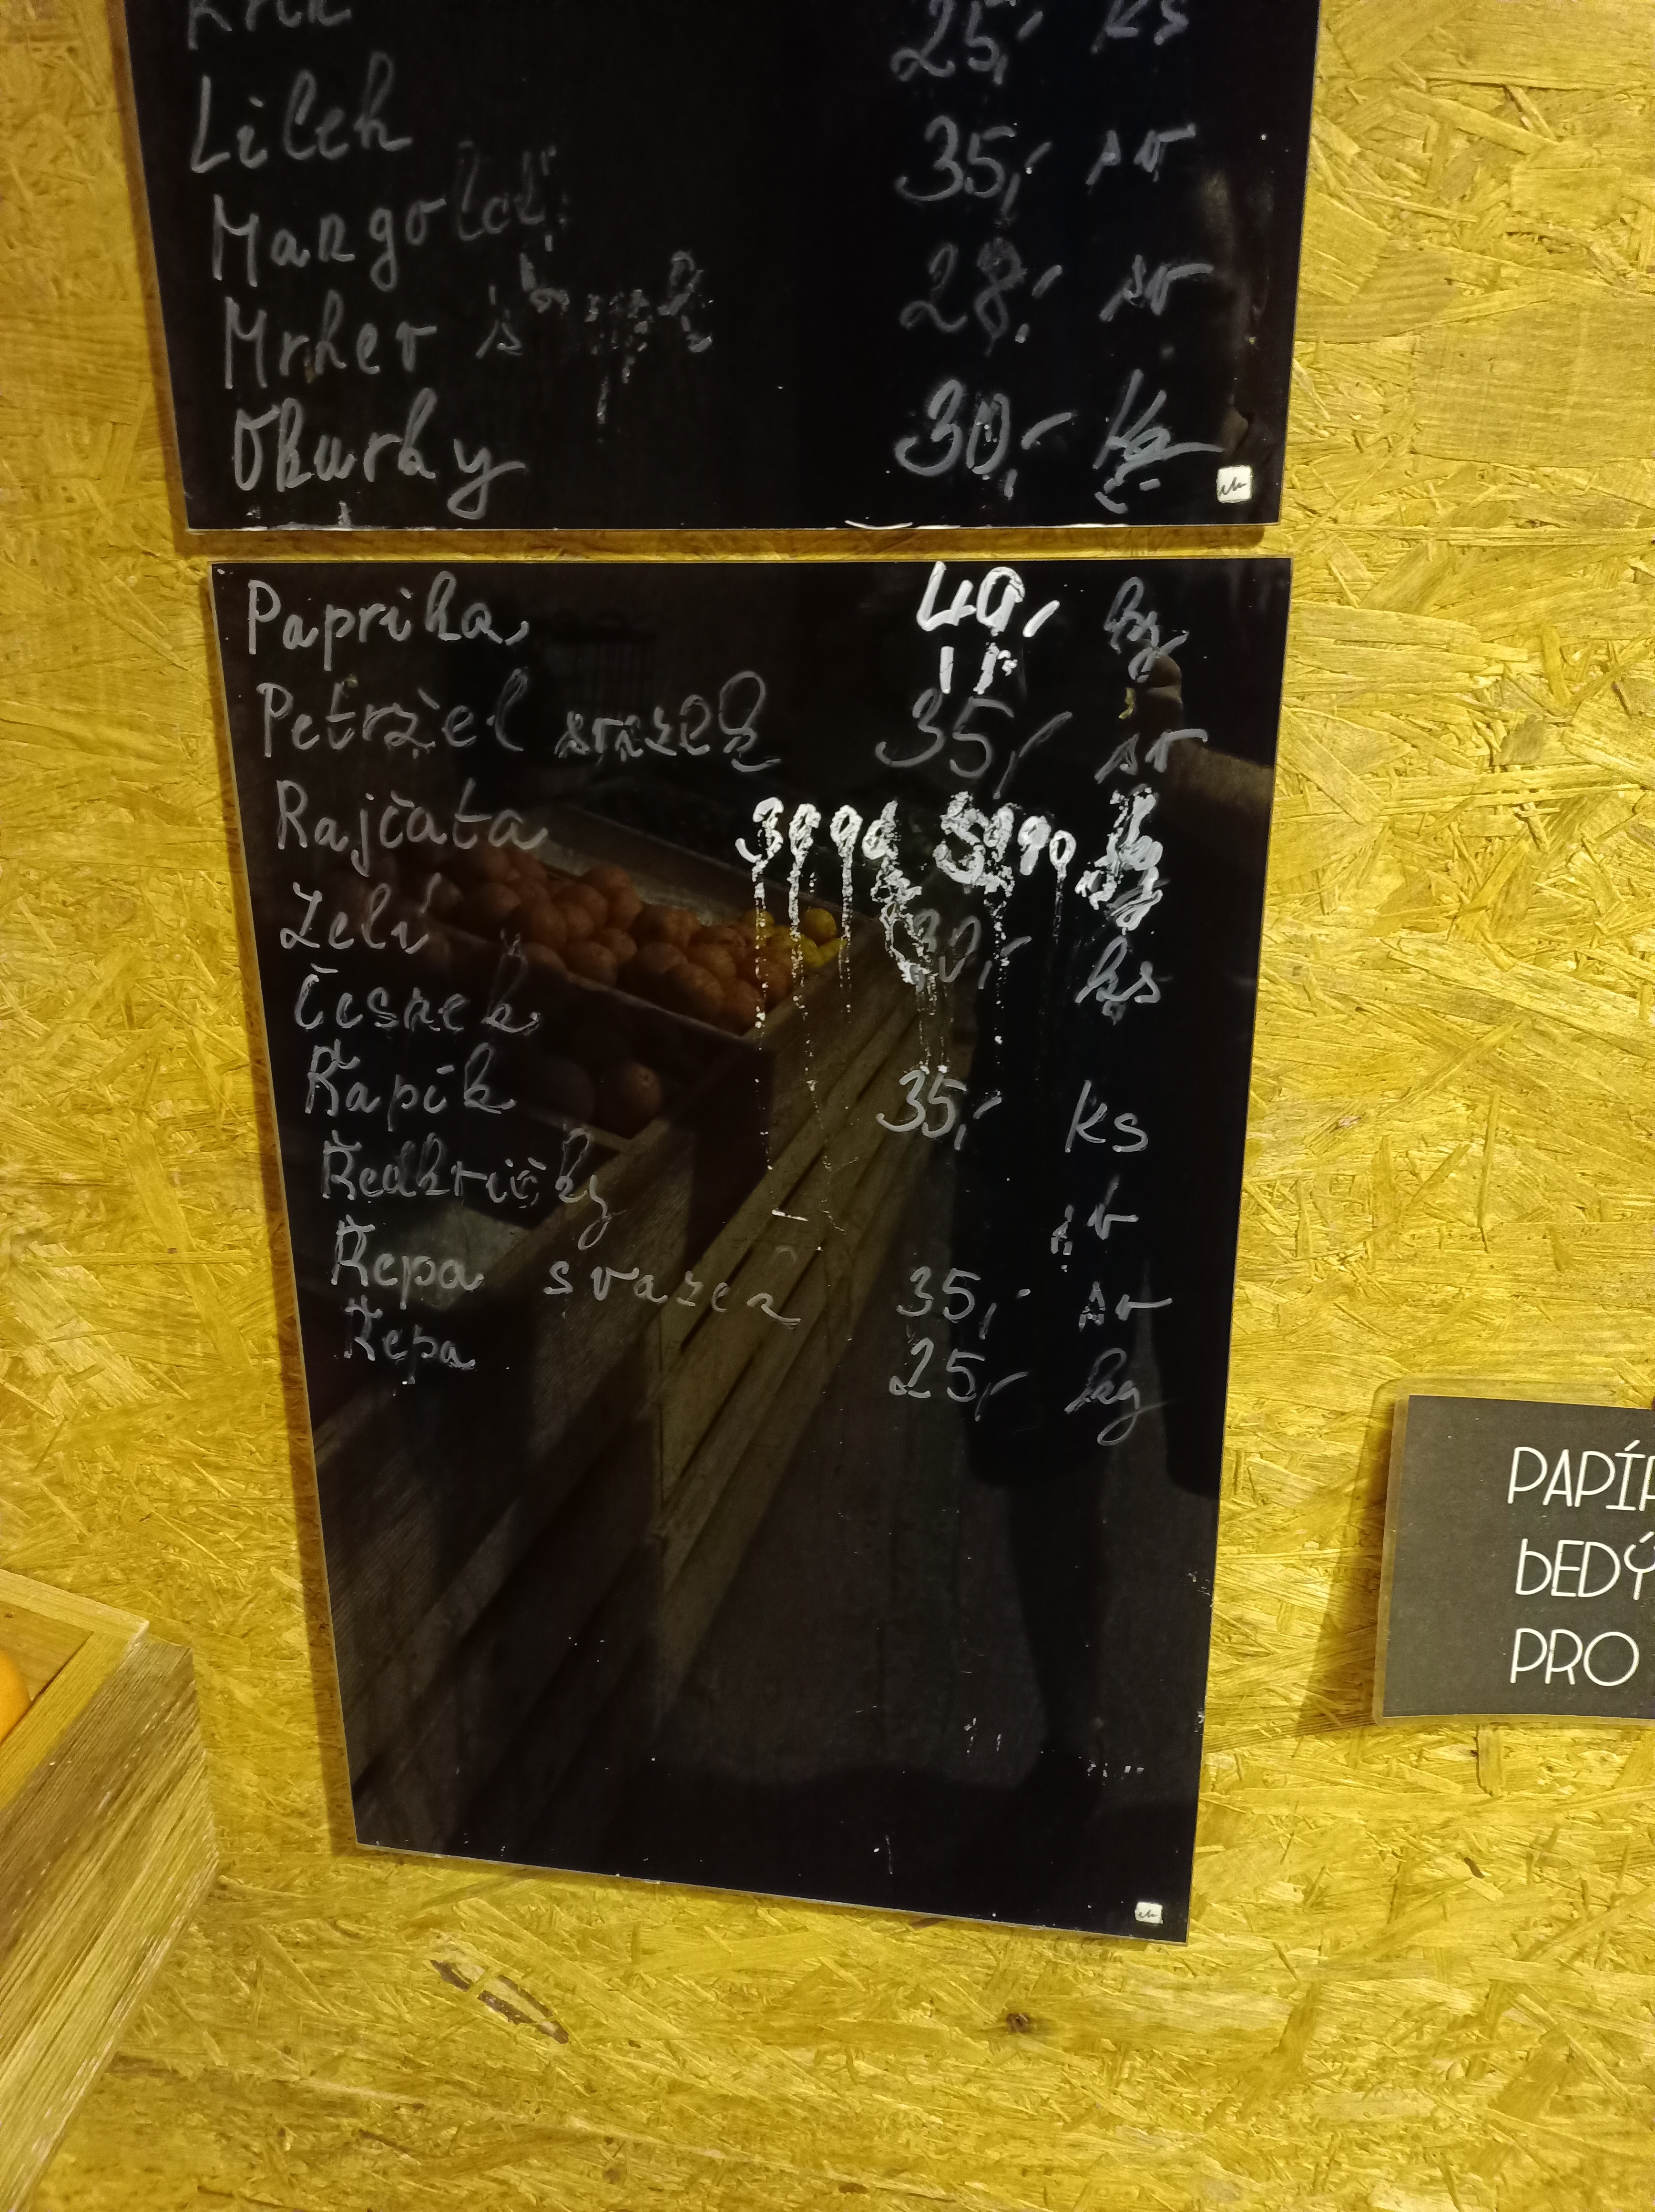 25,- ks
Lilek
35,- sv
Mangold
28,- sv
Mrkev svazek
30,- kg
Okurky
Paprika 49,- kg
Petržel svazek 35,- sv
Rajčata 3990 5990 kg
Zelí 30,- ks
Česnek
Řapík 35,- ks
Ředkvičky sv
Řepa svazek 35,- sv
Řepa 25,- kg
PAPÍR
BEDÝ
PRO